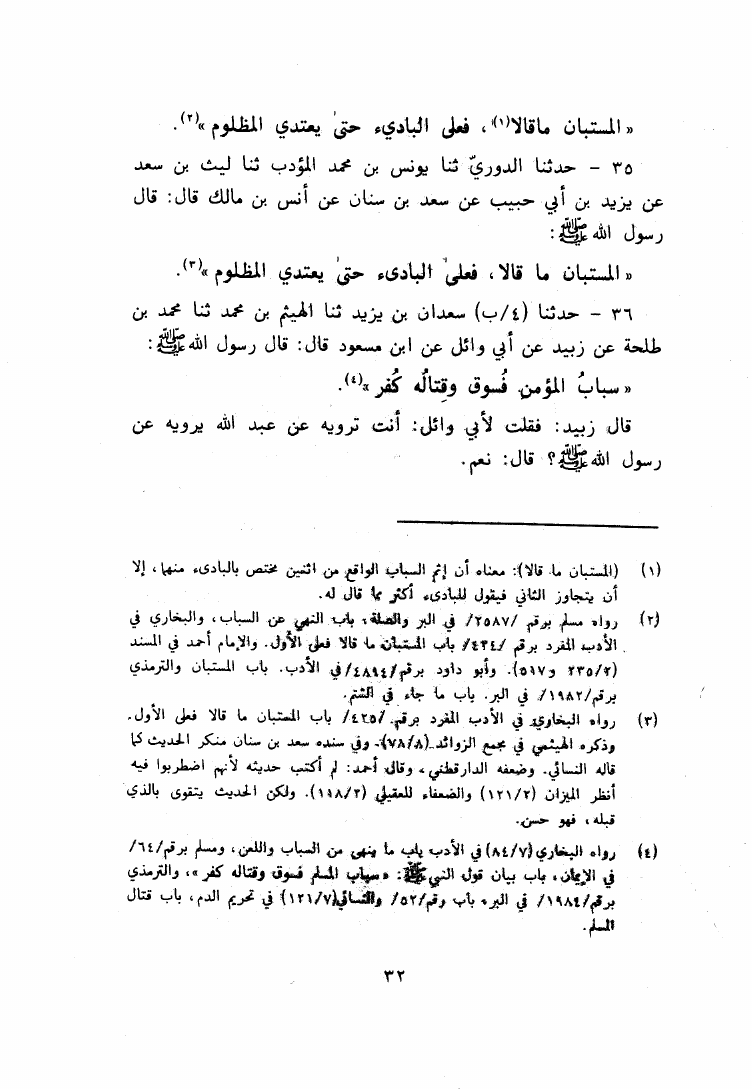 « المستبان ماقالا(١)، فعلى الباديء حتىٰ يعتدي المظلوم »(٢).
٣٥ – حدثنا الدوريّ ثنا يونس بن محمد المؤدب ثنا ليث بن سعد
عن يزيد بن أبي حبيب عن سعد بن سنان عن أنس بن مالك قال: قال
رسول الله ﷺ:
« المستبان ما قالا، فعلىٰ البادىء حتىٰ يعتدي المظلوم »(٣).
٣٦ – حدثنا (٤/ب) سعدان بن يزيد ثنا الهيثم بن محمد ثنا محمد بن
طلحة عن زبيد عن أبي وائل عن ابن مسعود قال: قال رسول الله ﷺ:
« سبابُ المؤمن فُسوق وقتالُه كُفر »(٤).
قال زبيد: فقلت لأبي وائل: أنت ترويه عن عبد الله يرويه عن
رسول الله ﷺ؟ قال: نعم.
(١) (المستبان ما قالا): معناه أن إثم السباب الواقع من اثنين مختص بالبادىء منهما، إلا
أن يتجاوز الثاني فيقول للبادىء أكثر مما قال له.
(٢) رواه مسلم برقم /٢٥٨٧/ في البر والصلة، باب النهي عن السباب، والبخاري في
الأدب المفرد برقم /٤٢٤/ باب المستبان ما قالا فعلى الأول. والإمام أحمد في المسند
(٢٣٥/٢ و٥١٧). وأبو داود برقم/٤٨٩٤/في الأدب. باب المستبان والترمذي
برقم/١٩٨٢/ في البر. باب ما جاء في الشتم.
(٣) رواه البخاري في الأدب المفرد برقم /٤٢٥/ باب المستبان ما قالا فعلى الأول.
وذكره الهيثمي في مجمع الزوائد (٧٨/٨). وفي سنده سعد بن سنان منكر الحديث كما
قاله النسائي. وضعفه الدارقطني، وقال أحمد: لم أكتب حديثه لأنهم اضطربوا فيه
أنظر الميزان (١٢١/٢) والضعفاء للعقيلي (١١٨/٢). ولكن الحديث يتقوى بالذي
قبله، فهو حسن.
(٤) رواه البخاري(٨٤/٧) في الأدب باب ما ينهى من السباب واللعن، ومسلم برقم/٦٤/
في الإيمان، باب بيان قول النبي ﷺ: «سباب المسلم فسوق وقتاله كفر»، والترمذي
برقم/١٩٨٤/ في البر، باب رقم/٥٢/ والنسائي(١٢١/٧) في تحريم الدم، باب قتال
المسلم.
٣٢